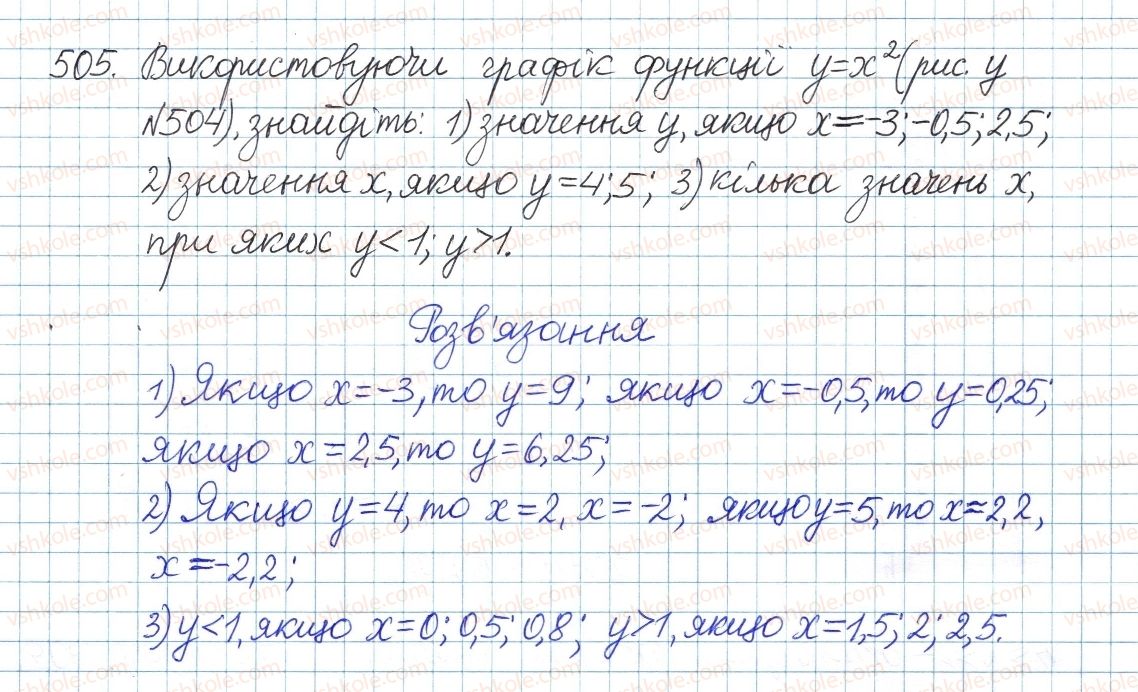 505. Використовуючи графік функції y=x²(рис. у
№504), знайдіть: 1) значення y, якщо x=-3; -0,5; 2,5;
2) значення x, якщо y=4; 5; 3) кілька значень x,
при яких y<1; y>1.
Розв'язання
1) Якщо x=-3, то y=9; якщо x=-0,5, то y=0,25;
якщо x=2,5, то y=6,25;
2) Якщо y=4, то x=2, x=-2; якщо y=5, то x≈2,2,
x≈-2,2;
3) y<1, якщо x=0; 0,5; 0,8; y>1, якщо x=1,5; 2; 2,5.